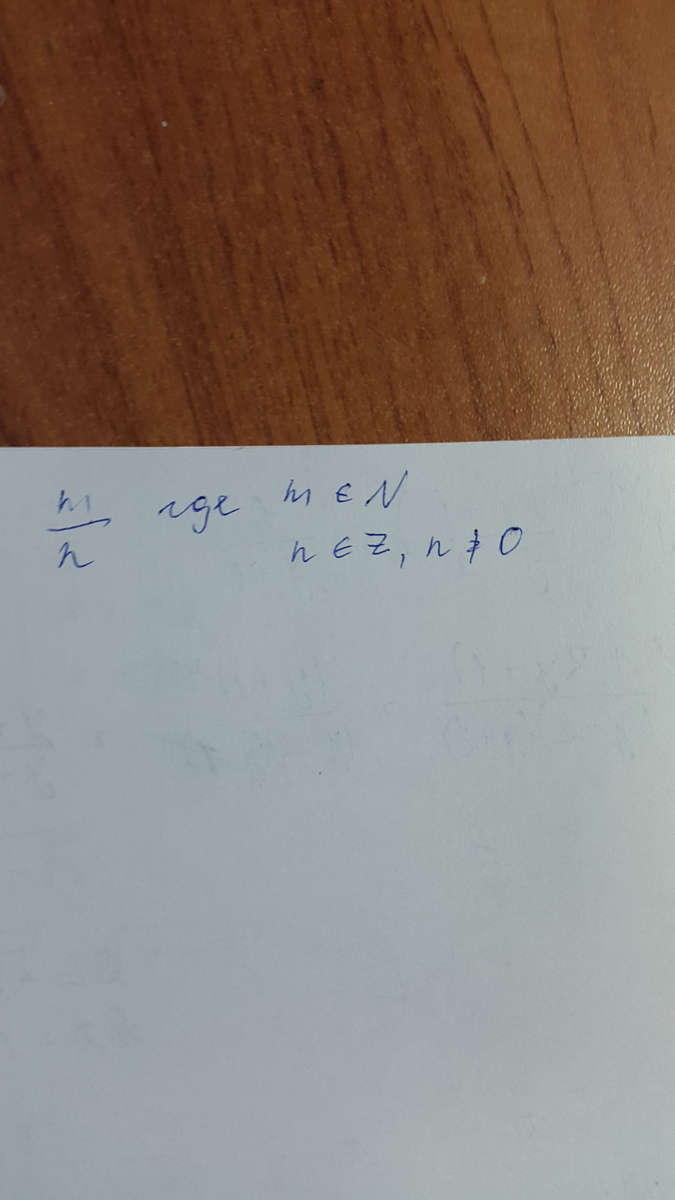 m/n где m ∈ N
n ∈ Z, n ≠ 0